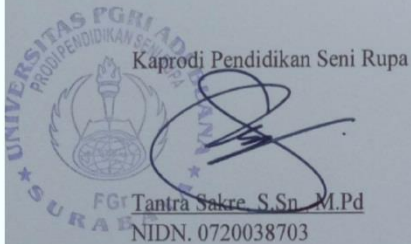 UNIVERSITAS PGRI ADI BUANA
PRODI PENDIDIKAN SENI RUPA
SURABAYA
Kaprodi Pendidikan Seni Rupa
Tantra Sakre, S.Sn., M.Pd
NIDN. 0720038703